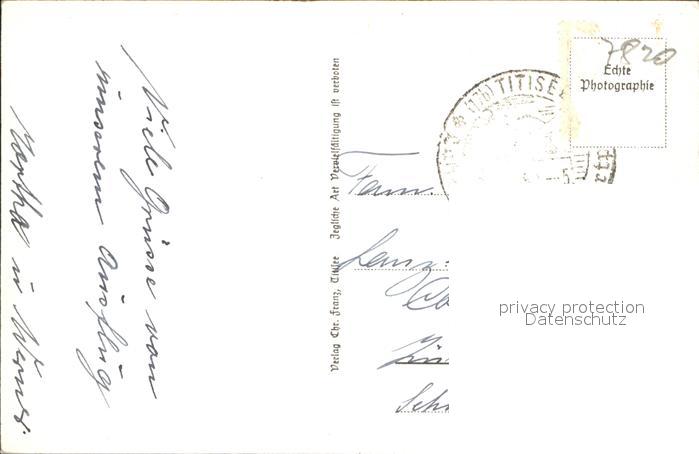 Viele Grüsse von
unserem Ausflug
Martha u Werner.
Verlag Chr. Franz, Titisee Jegliche Art Vervielfältigung ist verboten
(17b) TITISEE
7820
Echte
Photographie
Fam.
privacy protection
Datenschutz